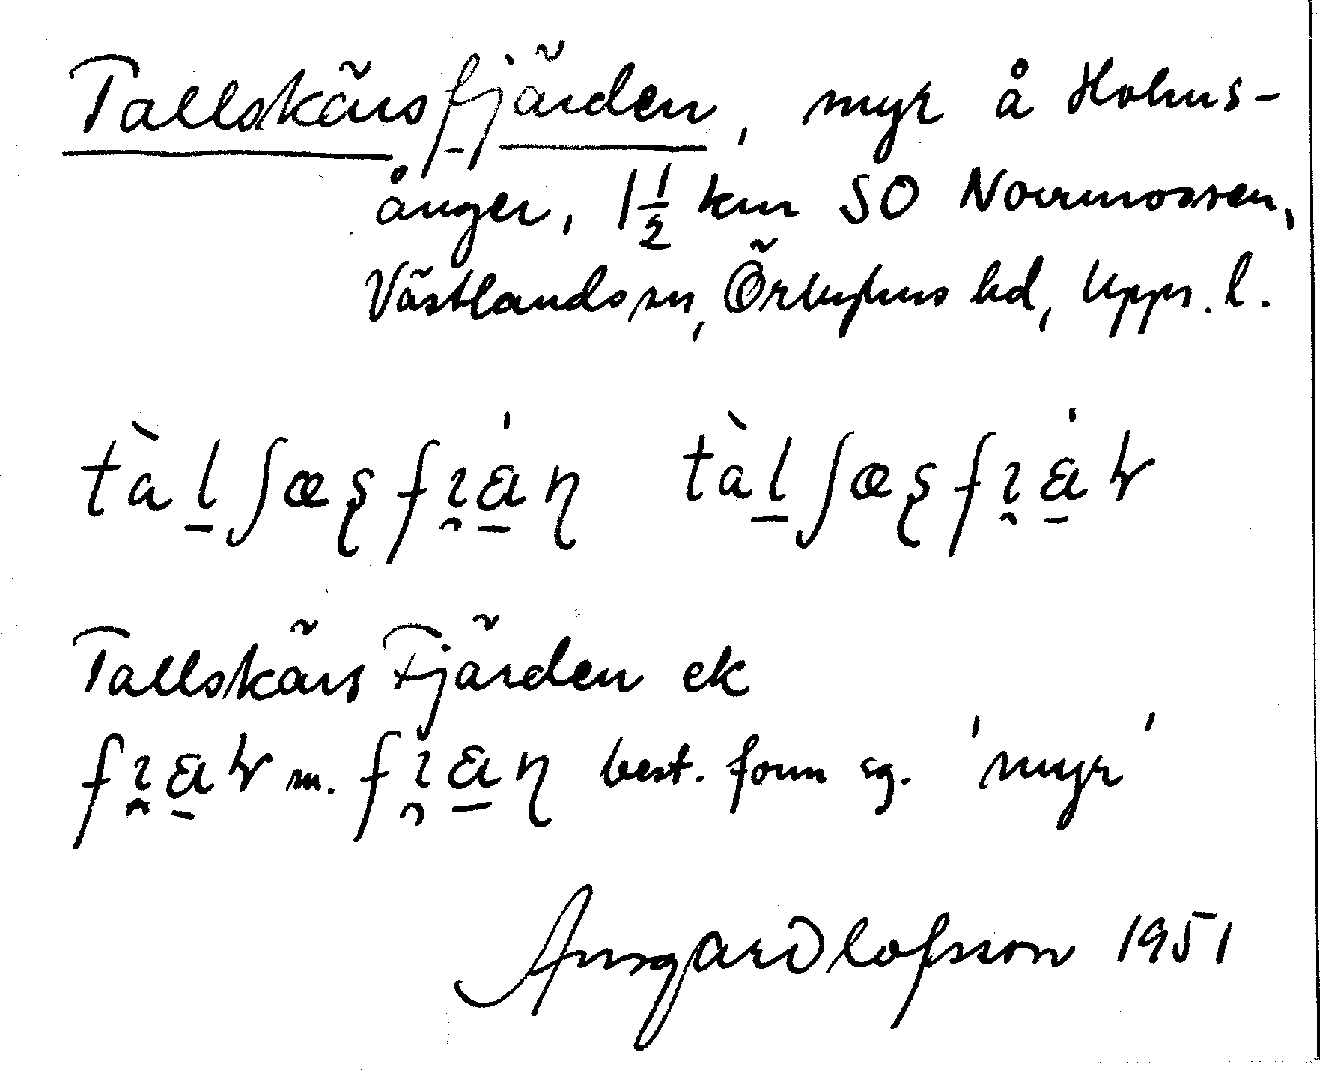 Tallskärsfjärden, myr å Hohus-
ånger, 1½ km SO Norrmossen,
Västlands sn, Örbyhus hd, Upps. l.
tàl̠ʃæʂfı̯á̠ɳ tàl̠ʃæʂfı̯á̠r
Tallskärs Fjärden ek
fı̯a̠r m. fı̯a̠ɳ best. form sg. 'myr'
Ansgar Olofsson 1951